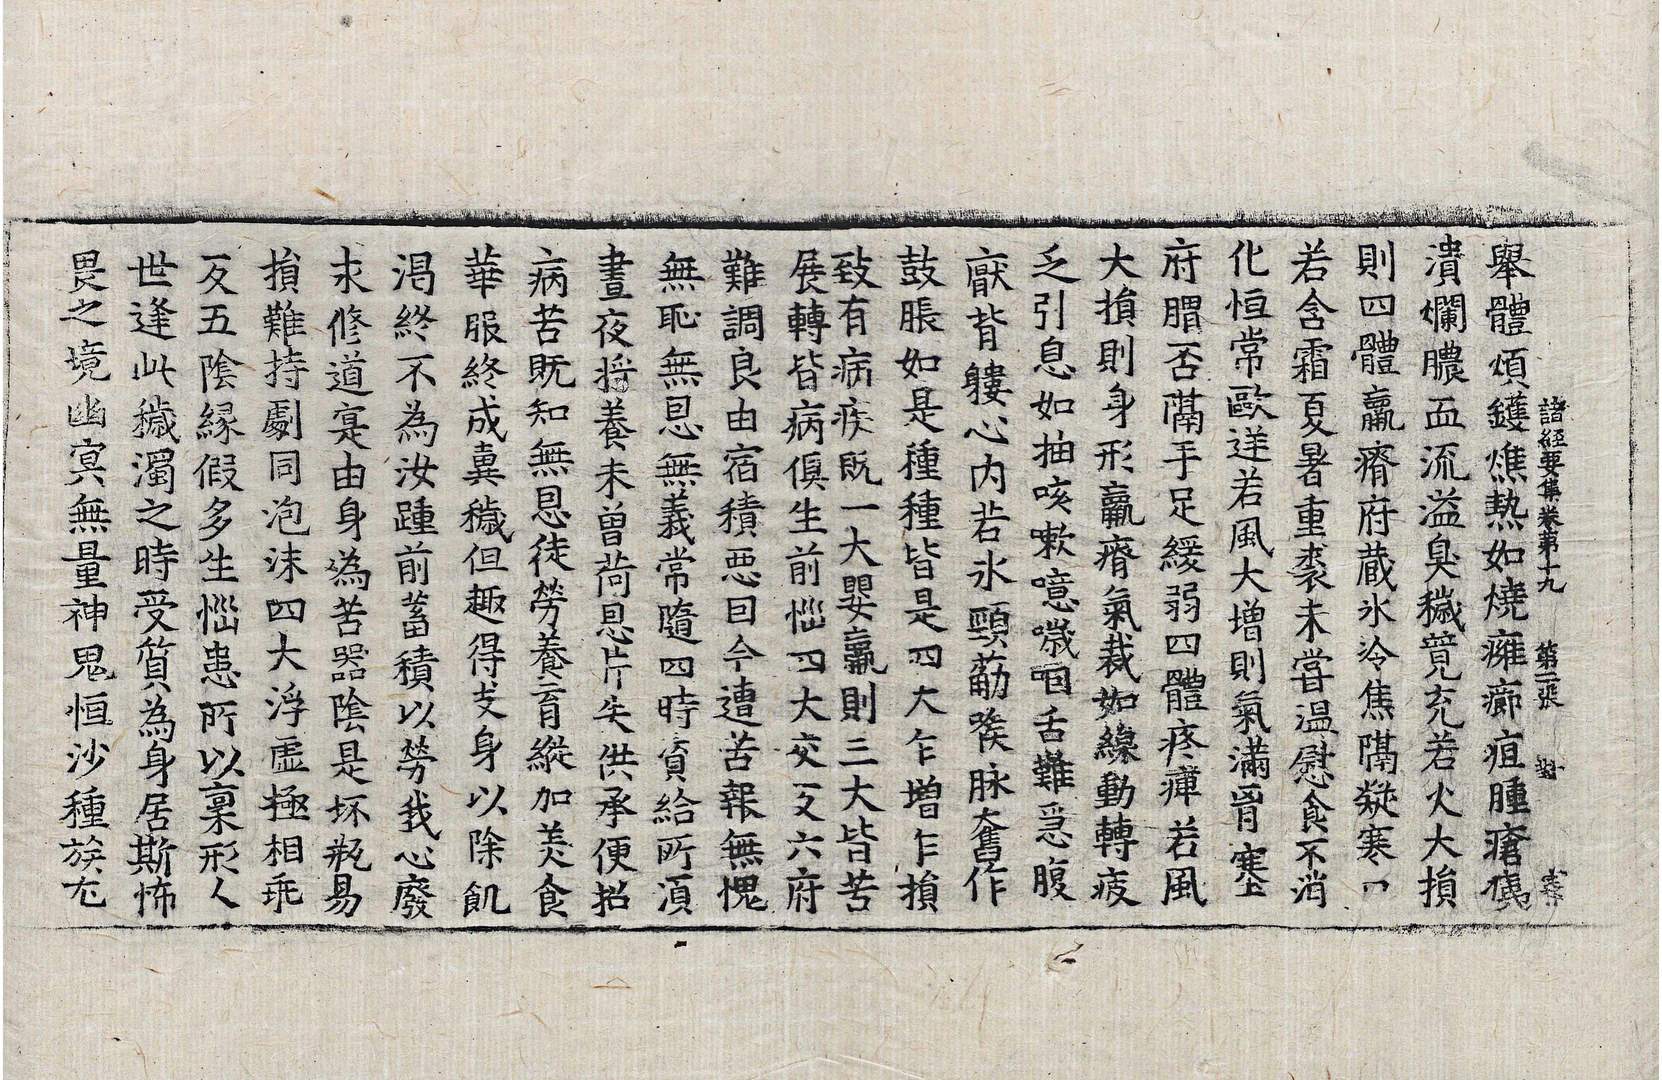 諸經要集卷第十九 第二張 對
舉體煩鑊燋熱如燒癰癤疽腫瘡痍
潰爛膿血流溢臭穢競充若火大損
則四體羸瘠府藏氷冷焦隔凝寒口
若含霜夏暑重裘未嘗温慰食不消
化恒常歐逆若風大增則氣滿胷塞
府胃否隔手足緩弱四體疼痺若風
大損則身形羸瘠氣裁如線動轉疲
乏引息如抽咳嗽噫噦咽舌難急腹
厭背僂心内若氷頸筋喉脉奮作
鼓脹如是種種皆是四大乍增乍損
致有病疾既一大嬰羸則三大皆苦
展轉皆病俱生煎惱四大交反六府
難調良由宿積惡因今遭苦報無愧
無恥無恩無義常隨四時資給所湏
晝夜將養未曾荷恩片失供承便招
病苦既知無恩徒勞養育縱加美食
華服終成糞穢但趣得支身以除飢
渴終不為汝踵前蓄積以勞我心廢
求修道寔由身為苦器陰是坏瓶易
損難持劇同泡沫四大浮虛極相乖
反五陰緣假多生惱患所以稟形人
世逢此穢濁之時受質為身居斯怖
畏之境幽冥無量神鬼恒沙種族尤